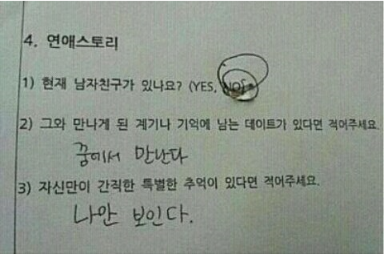 4. 연애스토리
1) 현재 남자친구가 있나요? (YES, NO)
2) 그와 만나게 된 계기나 기억에 남는 데이트가 있다면 적어주세요.
꿈에서 만난다
3) 자신만이 간직한 특별한 추억이 있다면 적어주세요.
나만 보인다.